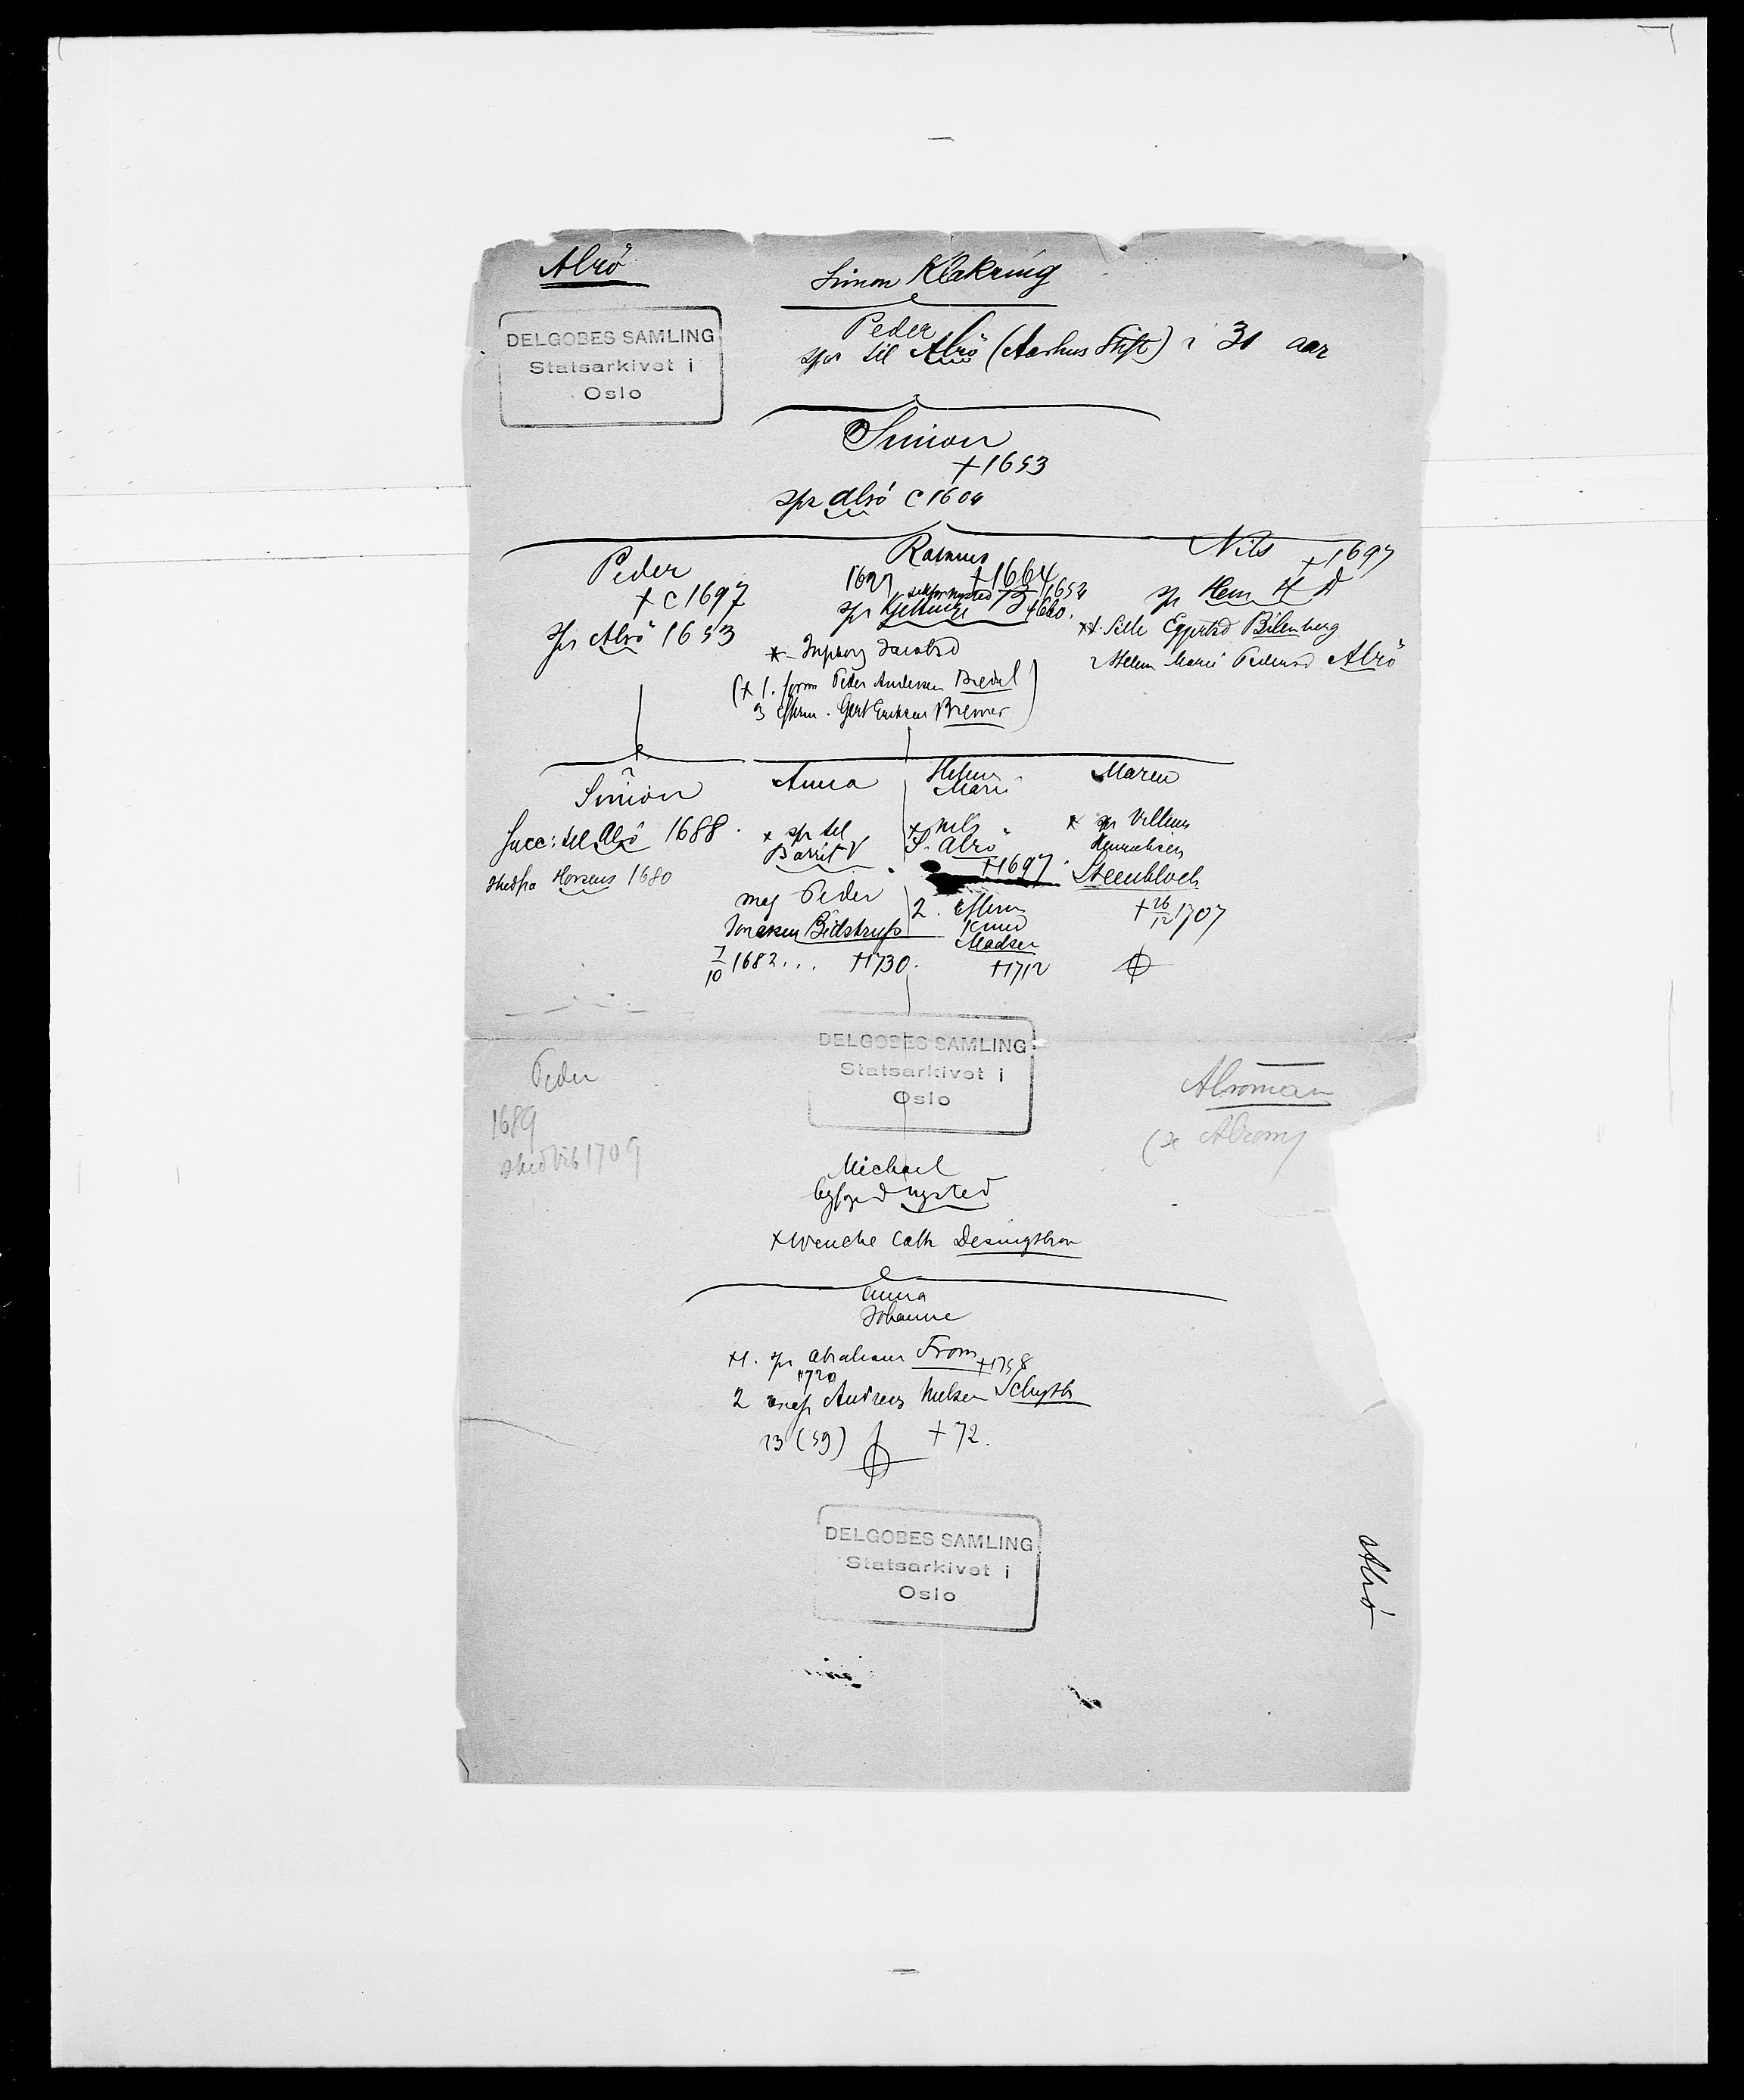 Alrö
Simon Klakring
DELGOBES SAMLING
Statsarkivet i
Oslo
Peder
spr til Alrö (Aarhus Stift) i 31 aar
Simon
+1653
spr Alrö c 1604
Peder
+ c 1697
spr Alrö 1653
Rasmus
+1664
1654
spr 1660.
Ingborg Jacobsd
(x 1. form Peder Andersen Bredal
3 efterm. Gert Eriksen Bremer)
Nils +1697
sp Hem
x1. Sille Eggertsd Bilenberg
2 Helene Marie Pedersd Alrö
Simon
Succ: til Alrö 1688.
stud fra Horsens 1680
Anna
x spr til
Barrit V
mag Peder
Jonasen Bidstrup
7/10 1682... +1730.
Helene
Marie
x Nils
S. Alrö
+1697.
2. efterm
Knud
Madsen
+1712
Maren
x spr Villum
Steenbloch
+ 26/12 1707
DELGOBES SAMLING
Statsarkivet i
Oslo
Peder
1689
stud Vib 1709
Alroman
Michael
byfoged Nysted
x Wenche Cath
Anna
Johanne
x1. spr Abraham From +1758
1720
2 Andreas Nielsen Schytth
23 (59) +72.
DELGOBES SAMLING
Statsarkivet i
Oslo
Alrö